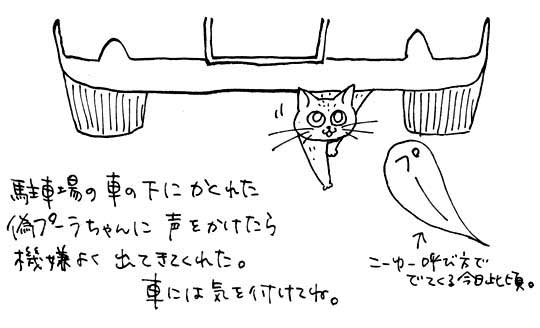 プー
駐車場の車の下にかくれた
偽プーラちゃんに声をかけたら
機嫌よく出てきてくれた。
車には気を付けてね。
ニーカー呼び方で
でてくる今日此頃。